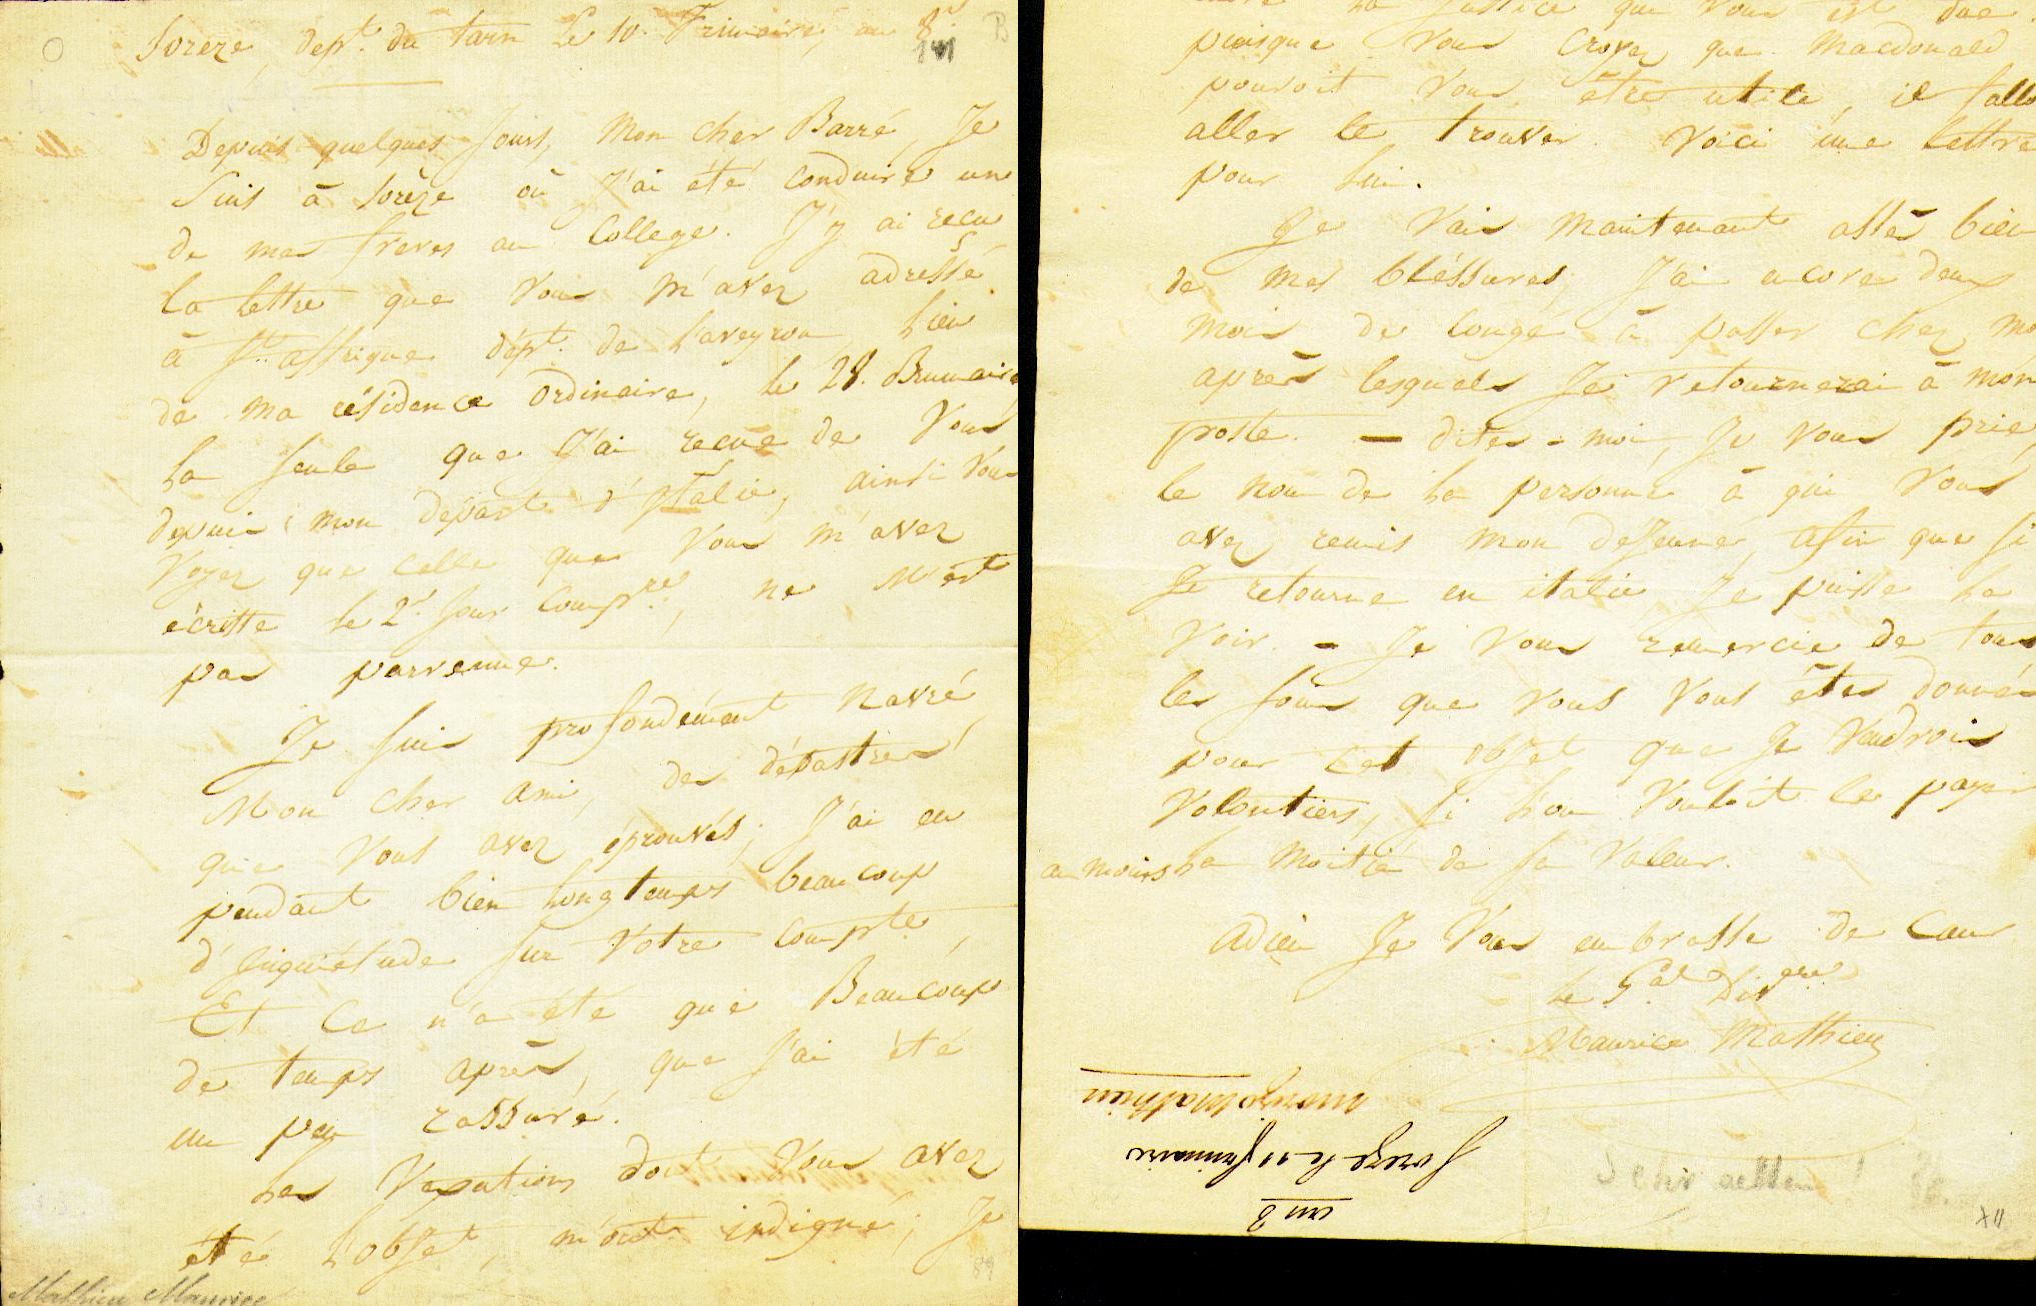 Soreze, dept. du tarn le 10. Frimaire, an 8
Depuis quelques Jours, Mon cher Barré, Je
Suis à Sorèze où J'ai été conduire un
de mes freres au College. J'y ai recu
la lettre que Vous M'avez adressé
à St. affrique dépt. de l'aveyron, lieu
de ma résidence ordinaire, le 28. Brumaire,
la seule que J'ai recue de Vous
depuis mon départ d'Italie, ainsi Vous
Voyez que celle que Vous m'avez
écritte le 2e. Jour Compre, ne M'est
pas parvenue.
Je suis profondément navré,
Mon cher ami, des désastres
que Vous avez éprouvés; J'ai eu
pendant bien longtemps beaucoup
d'inquiétude sur Votre compte,
Et Ce n'a été que Beaucoup
de temps après, que J'ai été
un peu rassuré.
Les Vexations dont Vous avez
été l'objet, m'ont indigné; Je
Mathieu Maurice
89
la Justice que Vous est due.
puisque Vous croyez que Macdonald
pouvoit Vous être utile, il fallo
aller le trouver. Voici une lettre
pour lui.
Je Vais Maintenant assés bien
de Mes bléssures, J'ai encore deux
Mois de congé à passer chez mo
après lesquels Je retournerai à mon
poste. — dites-moi, Je Vous prie,
le nom de la personne à qui Vous
avez remis mon déjeuné, afin que si
Je retourne en italie Je puisse la
Voir. — Je Vous remercie de tous
les soins que Vous Vous êtes donnés
pour cet objet que Je Vendrois
Volontiers, si l'on Vouloit le payer
au moins la Moitié de sa Valeur.
Adieu Je Vous embrasse de Cœur
le Gal Divre
Maurice Mathieu
Mathieu
Soreze le 10 frimaire
an 8
XII